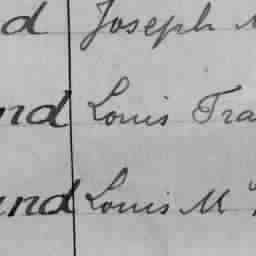 d Joseph
nd Louis Tra
und Louis M